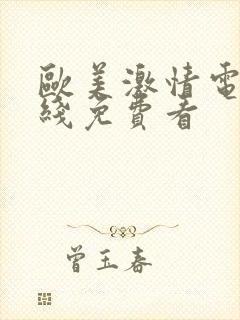 歐美激情電
綫免費看
曾玉春